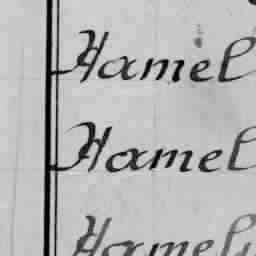 Hamel
Hamel
Hamel